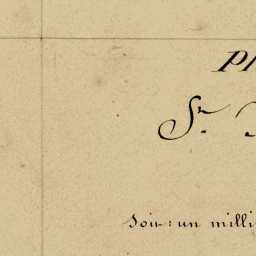 Pl
Sr.
Soit: un milli